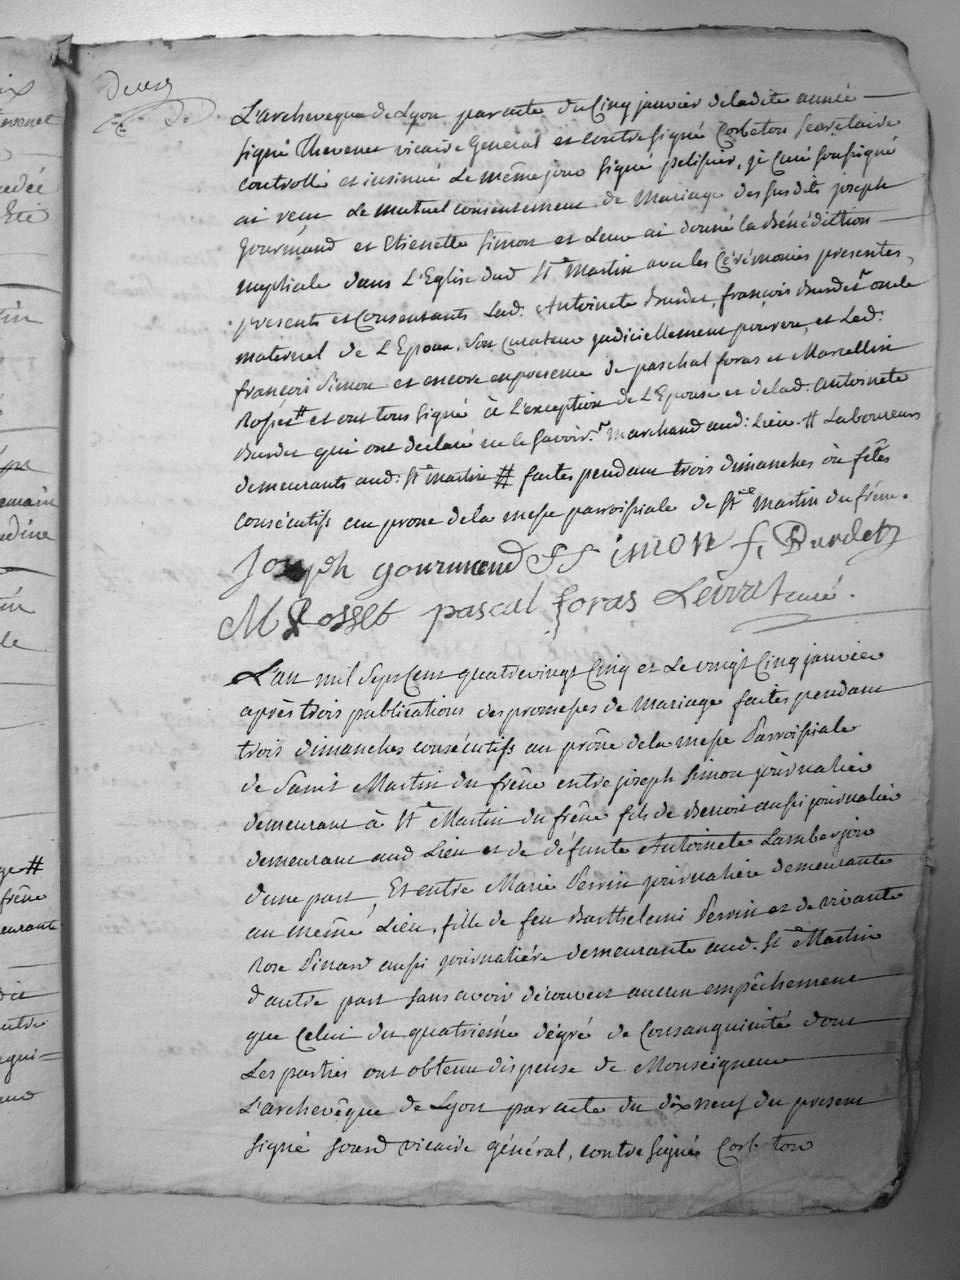 Deux
L'archeveque de Lyon par acte du Cinq janvier de ladite année
signé Thevenet vicaire General et contresigné Corbeton secretaire
controllé et insinué Le même jour signé pelissier, je Curé soussigné
ai recu Le mutuel consentement de Mariage des susdits joseph
Gourmand et Etienette Simon et Leur ai donné la Bénédiction
nuptiale dans L'Eglise dud. St Martin avec les Cérémonies presentes,
presents et Consentants Lad. Antoinete Burdet, françois Burdet oncle
maternel de L'Epouse, son curateur judiciellement pourvu, et Led.
françois Simon et encore en presence de paschal foras et Marcellin
Rosset # et ont tous signé à L'exception de L'Epouse et de lad. Antoinete
Burdet qui ont declaré ne le savoir. Marchand aud: Lieu. # Laboureurs
demeurants aud: St Martin # faites pendant trois dimanches ou fêtes
consécutifs au prone de la messe parroissiale de St Martin du frêne.
Joseph gourmand SSimon f. Burdet
M Rosset pascal foras curé.
L'an mil Sept Cent quatre vingt Cinq et Le vingt Cinq janvier
après trois publications des promesses de Mariage faites pendant
trois dimanches consécutifs au prône de la messe Parroissiale
de Saint Martin du frêne entre joseph Simon journalier
demeurant à St Martin du frêne fils de Benoit aussi journalier
demeurant aud Lieu et de défunte Antoinete Lamberjon
d'une part, Et entre Marie Perrin journaliere demeurante
au même Lieu, fille de feu Barthelemi Perrin et de vivante
Rose Pinard aussi journaliére demeurante aud. St Martin
d'autre part sans avoir découvert aucun empêchement
que Celui du quatrième dégré de Consanguinité dont
Les parties ont obtenu dispense de Monseigneur
L'archevêque de Lyon par acte du dix neuf du present
signé vicaire général, contresigné Corbeton